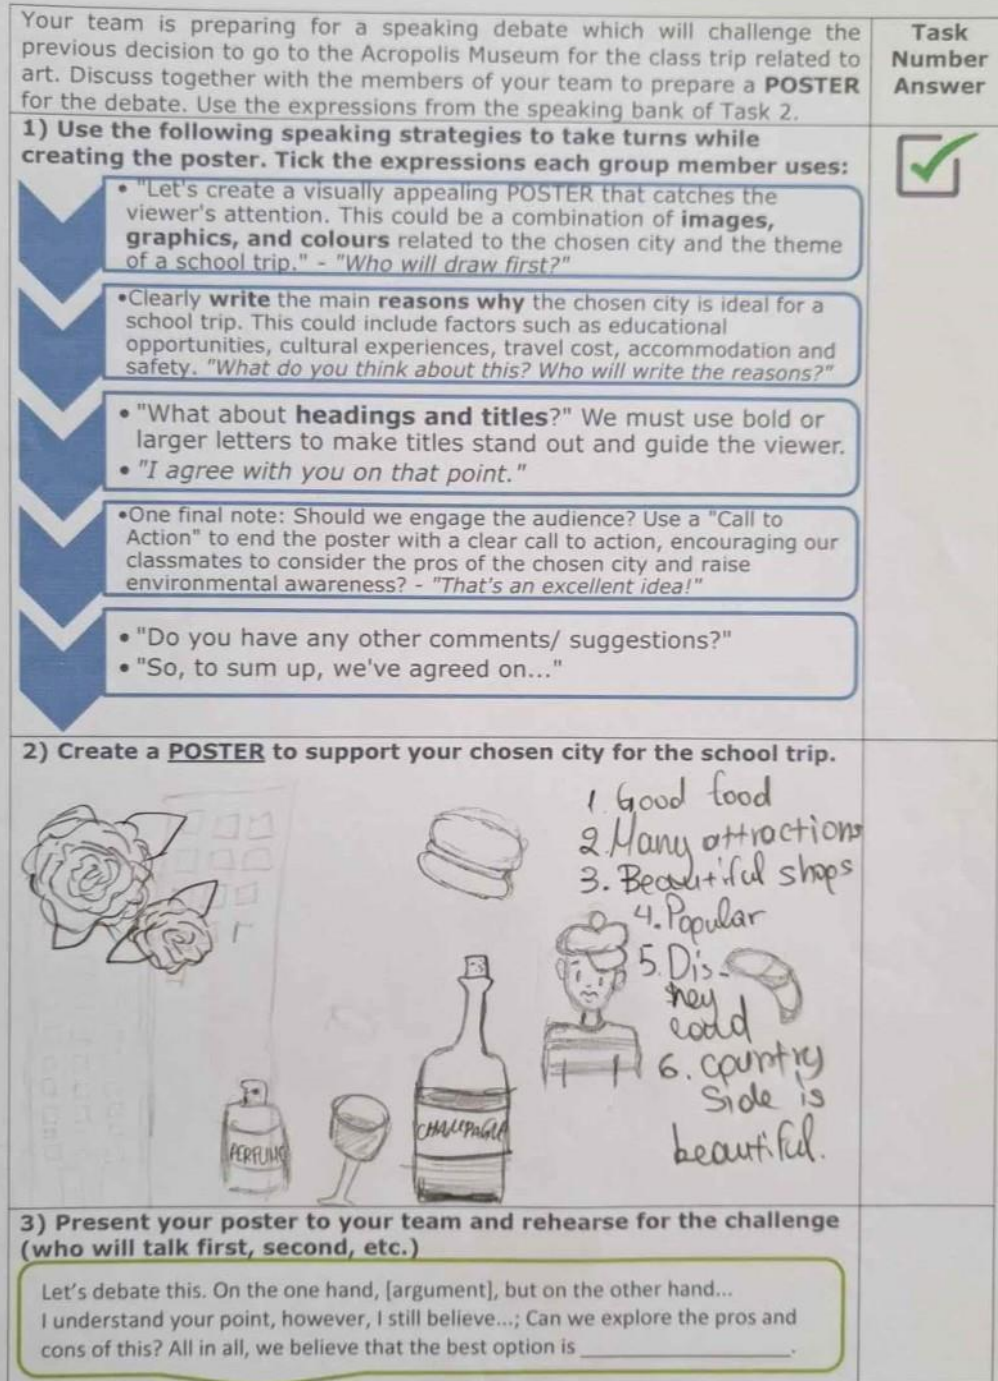 Your team is preparing for a speaking debate which will challenge the
previous decision to go to the Acropolis Museum for the class trip related to
art. Discuss together with the members of your team to prepare a POSTER
for the debate. Use the expressions from the speaking bank of Task 2.
Task
Number
Answer
1) Use the following speaking strategies to take turns while
creating the poster. Tick the expressions each group member uses:
• "Let's create a visually appealing POSTER that catches the
viewer's attention. This could be a combination of images,
graphics, and colours related to the chosen city and the theme
of a school trip." - "Who will draw first?"
•Clearly write the main reasons why the chosen city is ideal for a
school trip. This could include factors such as educational
opportunities, cultural experiences, travel cost, accommodation and
safety. "What do you think about this? Who will write the reasons?"
• "What about headings and titles?" We must use bold or
larger letters to make titles stand out and guide the viewer.
• "I agree with you on that point."
•One final note: Should we engage the audience? Use a "Call to
Action" to end the poster with a clear call to action, encouraging our
classmates to consider the pros of the chosen city and raise
environmental awareness? - "That's an excellent idea!"
• "Do you have any other comments/ suggestions?"
• "So, to sum up, we've agreed on..."
2) Create a POSTER to support your chosen city for the school trip.
1. Good food
2. Many attractions
3. Beautiful shops
4. Popular
5. Dis-
ney
6. country
side is
beautiful.
PERFUME
CHAMPAGNE
3) Present your poster to your team and rehearse for the challenge
(who will talk first, second, etc.)
Let's debate this. On the one hand, [argument], but on the other hand...
I understand your point, however, I still believe...; Can we explore the pros and
cons of this? All in all, we believe that the best option is ____________________.